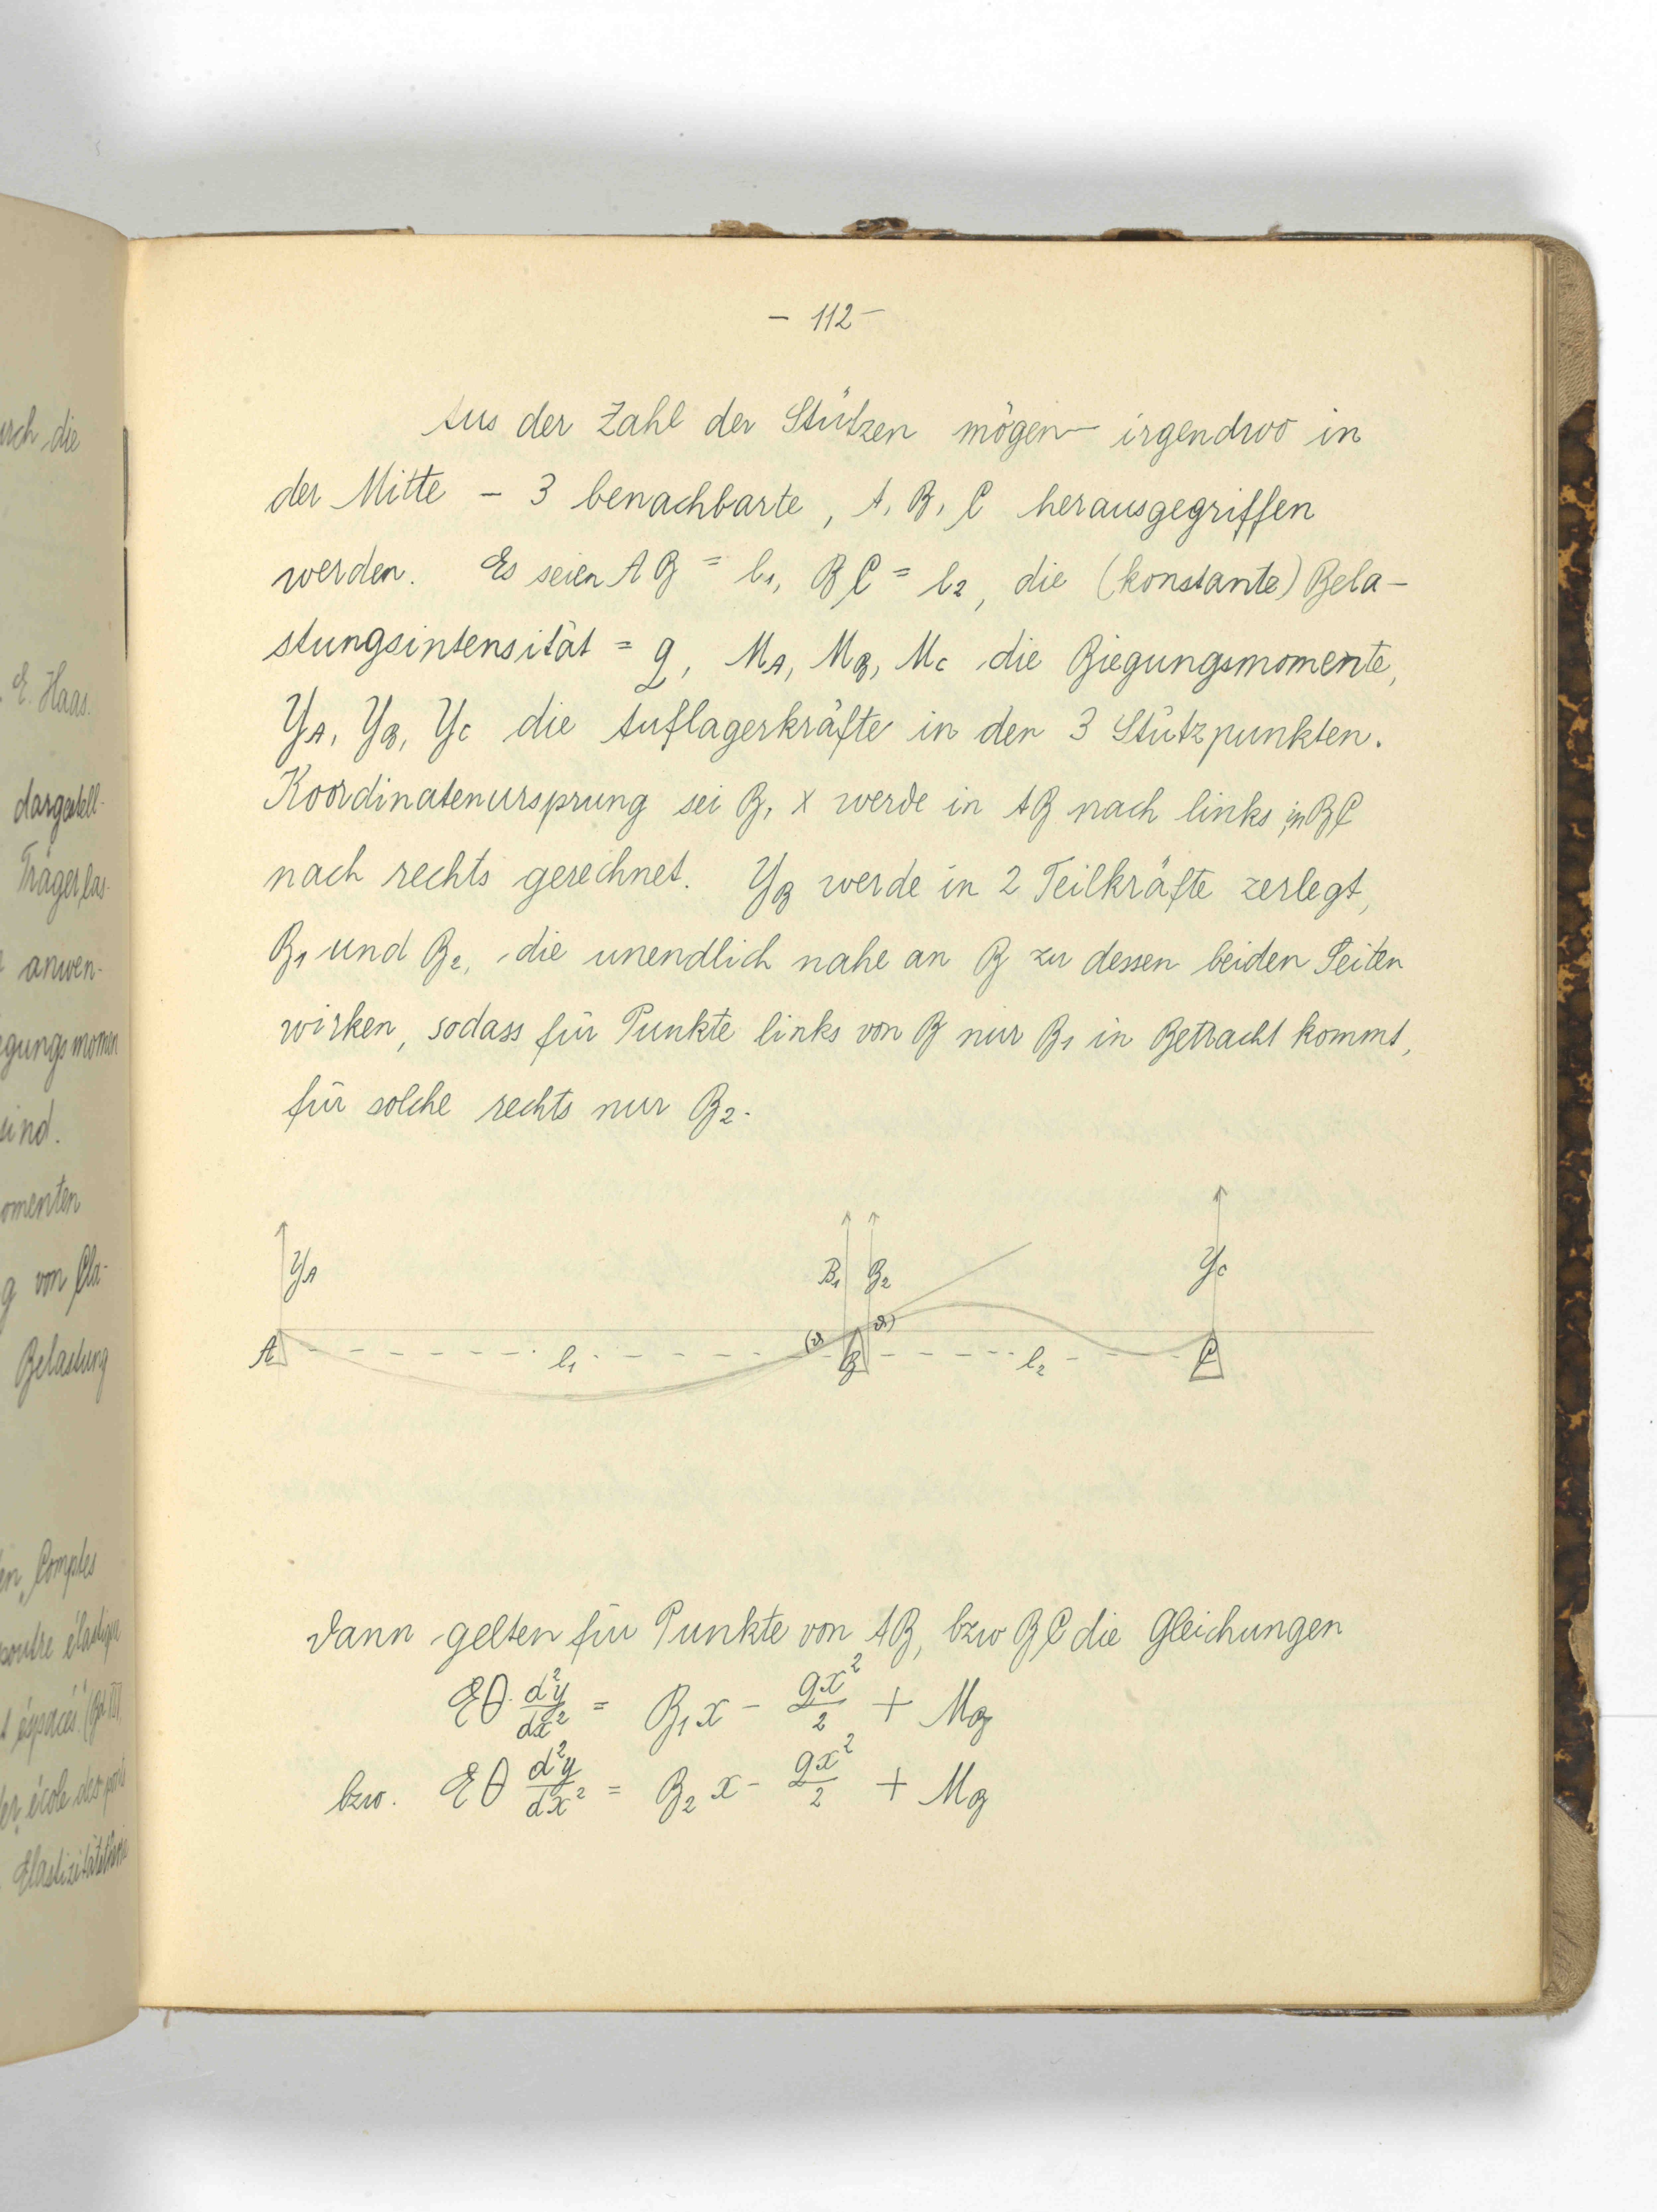 urch die
E. Haas.
dargestell-
Träger las-
anwen-
gungsmomen
sind.
omenten
g von Cla-
Belastung
en „Comptes
poutre élastique
école des pont
Elastizitätstheorie
- 112 -
Aus der Zahl der Stützen mögen - irgendwo in
der Mitte - 3 benachbarte, A, B, C herausgegriffen
werden. Es seien AB = l₁, BC = l₂, die (konstante) Bela-
stungsintensität = q, M_A, M_B, M_C die Biegungsmomente,
Y_A, Y_B, Y_C die Auflagerkräfte in den 3 Stützpunkten.
Koordinatenursprung sei B, x werde in AB nach links, in BC
nach rechts gerechnet. Y_B werde in 2 Teilkräfte zerlegt,
B₁ und B₂, die unendlich nahe an B zu dessen beiden Seiten
wirken, sodass für Punkte links von B nur B₁ in Betracht kommt,
für solche rechts nur B₂.
Y_A B₁ B₂ Y_C
(ϑ ϑ)
A l₁ B l₂ C
Dann gelten für Punkte von AB, bzw BC die Gleichungen
EΘ d²y/dx² = B₁x - qx²/2 + M_B
bzw. EΘ d²y/dx² = B₂x - qx²/2 + M_B